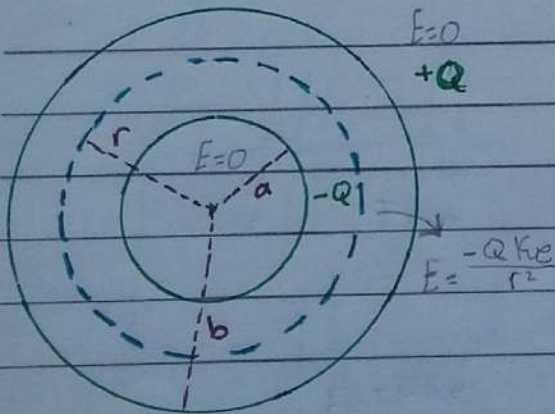 E=0
+Q
r
E=0
a
-Q
E = -Q Ke / r²
b